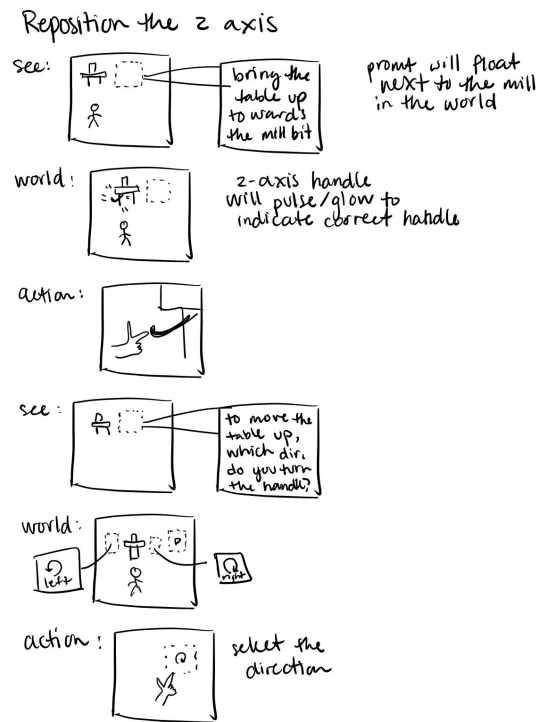 Reposition the z axis
see:
bring the
table up
to wards
the mill bit
promt will float
next to the mill
in the world
world:
z-axis handle
will pulse/glow to
indicate correct handle
action:
see:
to move the
table up,
which dir.
do you turn
the handle?
world:
left
right
action:
select the
direction